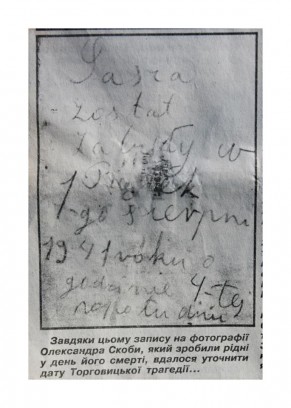 Sasza
został
zabity w
Piątek
1-go sierpni
1941 roku o
godzinie 4-tej
popołudniu
Завдяки цьому запису на фотографії
Олександра Скоби, який зробили рідні
у день його смерті, вдалося уточнити
дату Торговицької трагедії...